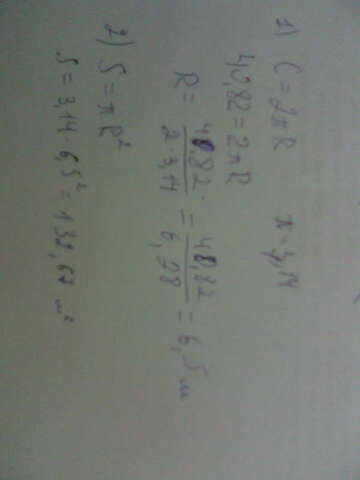 1) C = 2πR    π = 3,14
40,82 = 2πR
R = 40,82 / 2·3,14 = 40,82 / 6,28 = 6,5 м
2) S = πR²
S = 3,14 · 6,5² = 132,67 м²